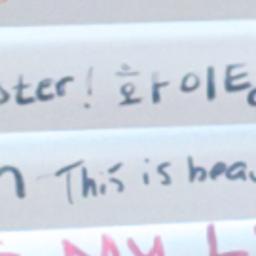 ster! 화이팅
n This is beau
MY L